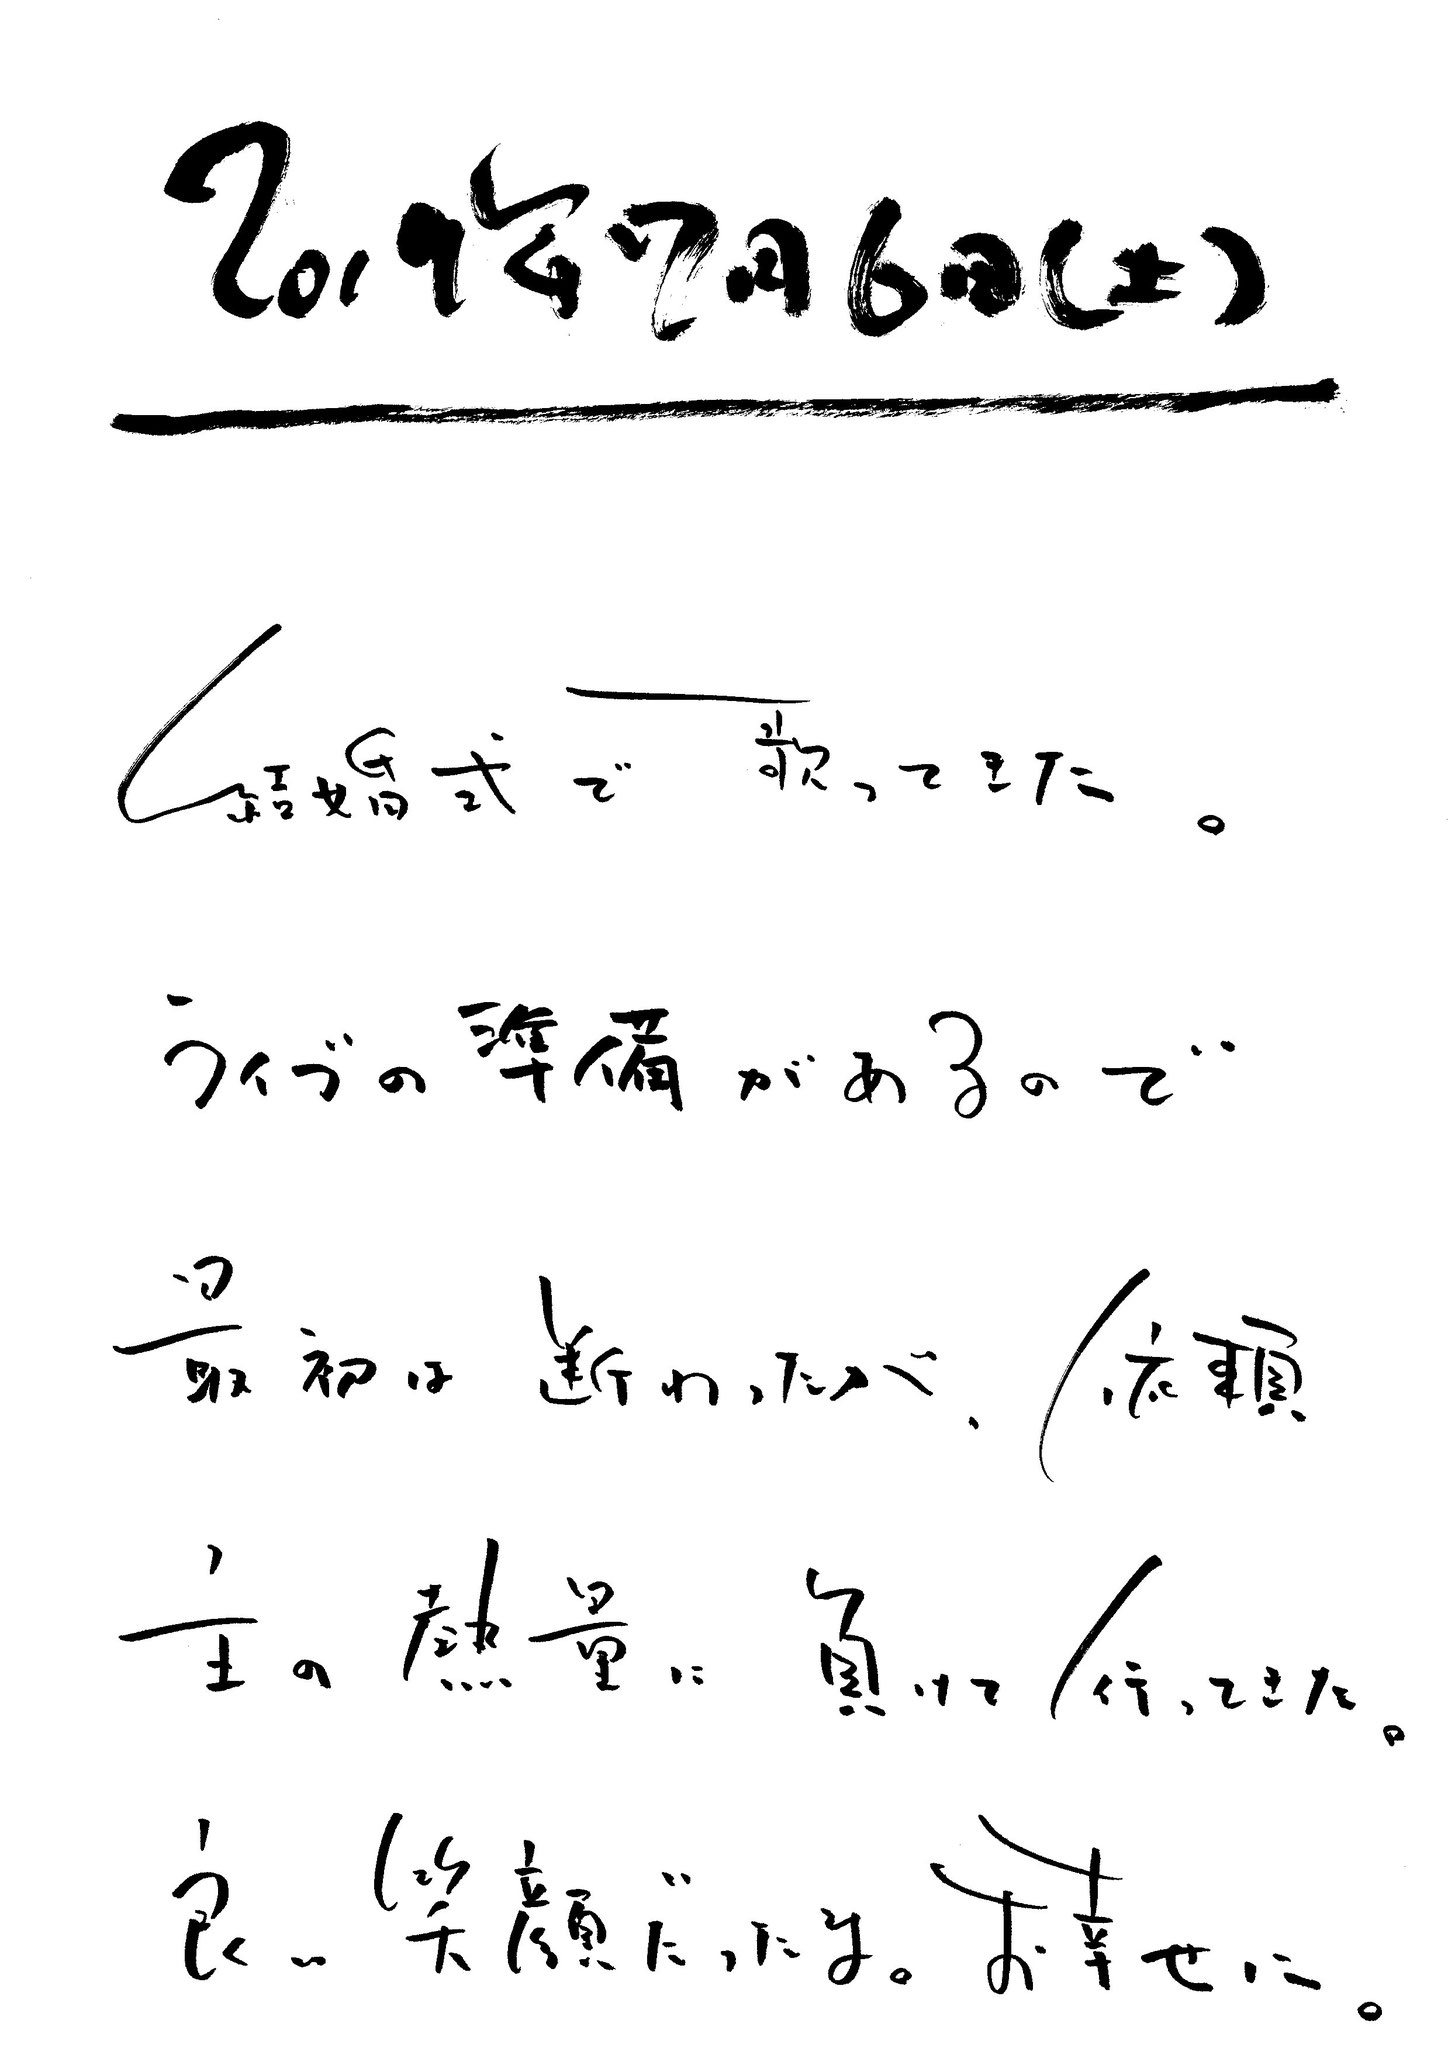 2019年7月6日(土)
結婚式で 歌ってきた。
ライブの準備があるので
最初は断わったが、依頼
主の熱量に負けて行ってきた。
良い笑顔だったな。お幸せに。